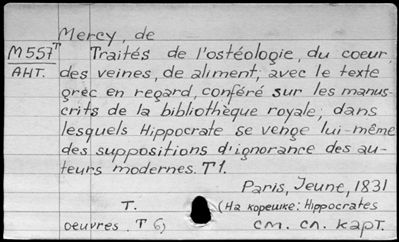 Mercy, de
M557т Traités de l'ostéologie, du coeur,
АНТ. des veines, de aliment; avec le texte
grec en regard, conféré sur les manus-
crits de la bibliothèque royale; dans
lesquels Hippocrate se venge lui-même
des suppositions d'ignorance des au-
teurs modernes. T 1.
Paris, Jeune, 1831
T. (На корешке: Hippocrates
oeuvres. T 6) см. сл. карт.